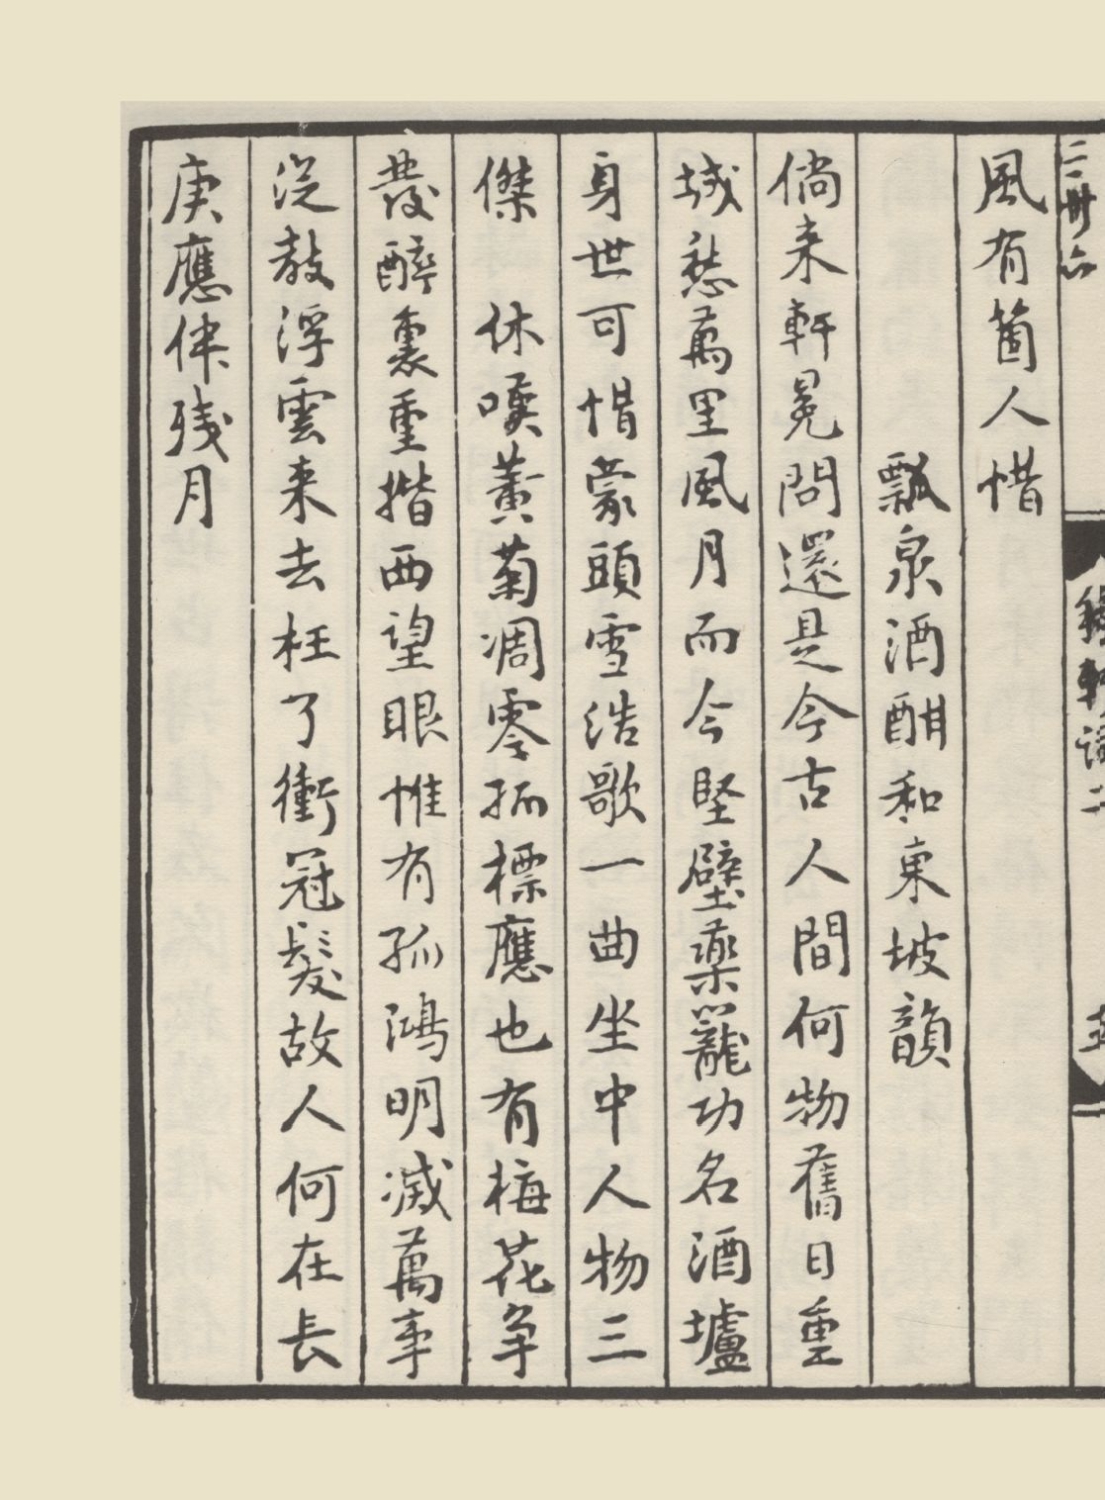 二卅六
稼軒詞二
風有箇人惜
瓢泉酒酣和東坡韻
倘来軒冕問還是今古人間何物舊日重
城愁萬里風月而今堅壁藥籠功名酒壚
身世可惜蒙頭雪浩歌一曲坐中人物三
傑　休嘆黃菊凋零孤標應也有梅花争
發醉裏重揩西望眼惟有孤鴻明滅萬事
從教浮雲来去枉了衝冠髮故人何在長
庚應伴殘月